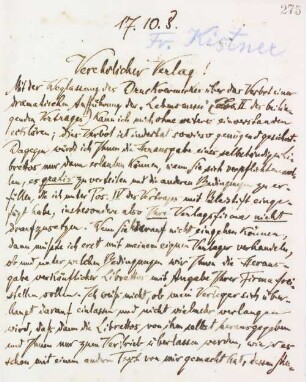 275
17.10.3
Fr. Kistner
Verehrlicher Verlag!
Mit der Weglassung des Druckvermerkes über das Verbot einer
dramatischen Aufführung des "Lebensmesse" (Pos. II des beilie-
genden Vertrages) kann ich mich ohne weiteres einverstanden
erklären; dies Verbot ist indertat sowieso genügend gesichert.
Dagegen würde ich Ihnen die Herausgabe eines selbständigen Li-
brettos nur dann erlauben können, wenn Sie sich verpflichten wollen,
es gratis zu verteilen und die andern Bedingungen zu er-
füllen, die ich unter Pos. IV des Vertrages mit Bleistift einge-
fügt habe, insbesondere also Ihre Verlagsfirma nicht
draufzusetzen. Wenn Sie darauf nicht eingehen können,
dann müßte ich erst mit meinem eignen Verleger verhandeln,
ob und unter welchen Bedingungen wir Ihnen die Heraus-
gabe verkäuflicher Librettos mit Angabe Ihrer Firma frei-
stellen wollen. Ich weiß nicht, ob mein Verleger sich über-
haupt darauf einlassen und nicht vielmehr verlangen
wird, daß dann die Librettos von ihm selbst herausgegeben
und Ihnen nur zum Vertrieb überlassen werden, wie er's
schon mit einem andern Text von mir gemacht hat, dessen